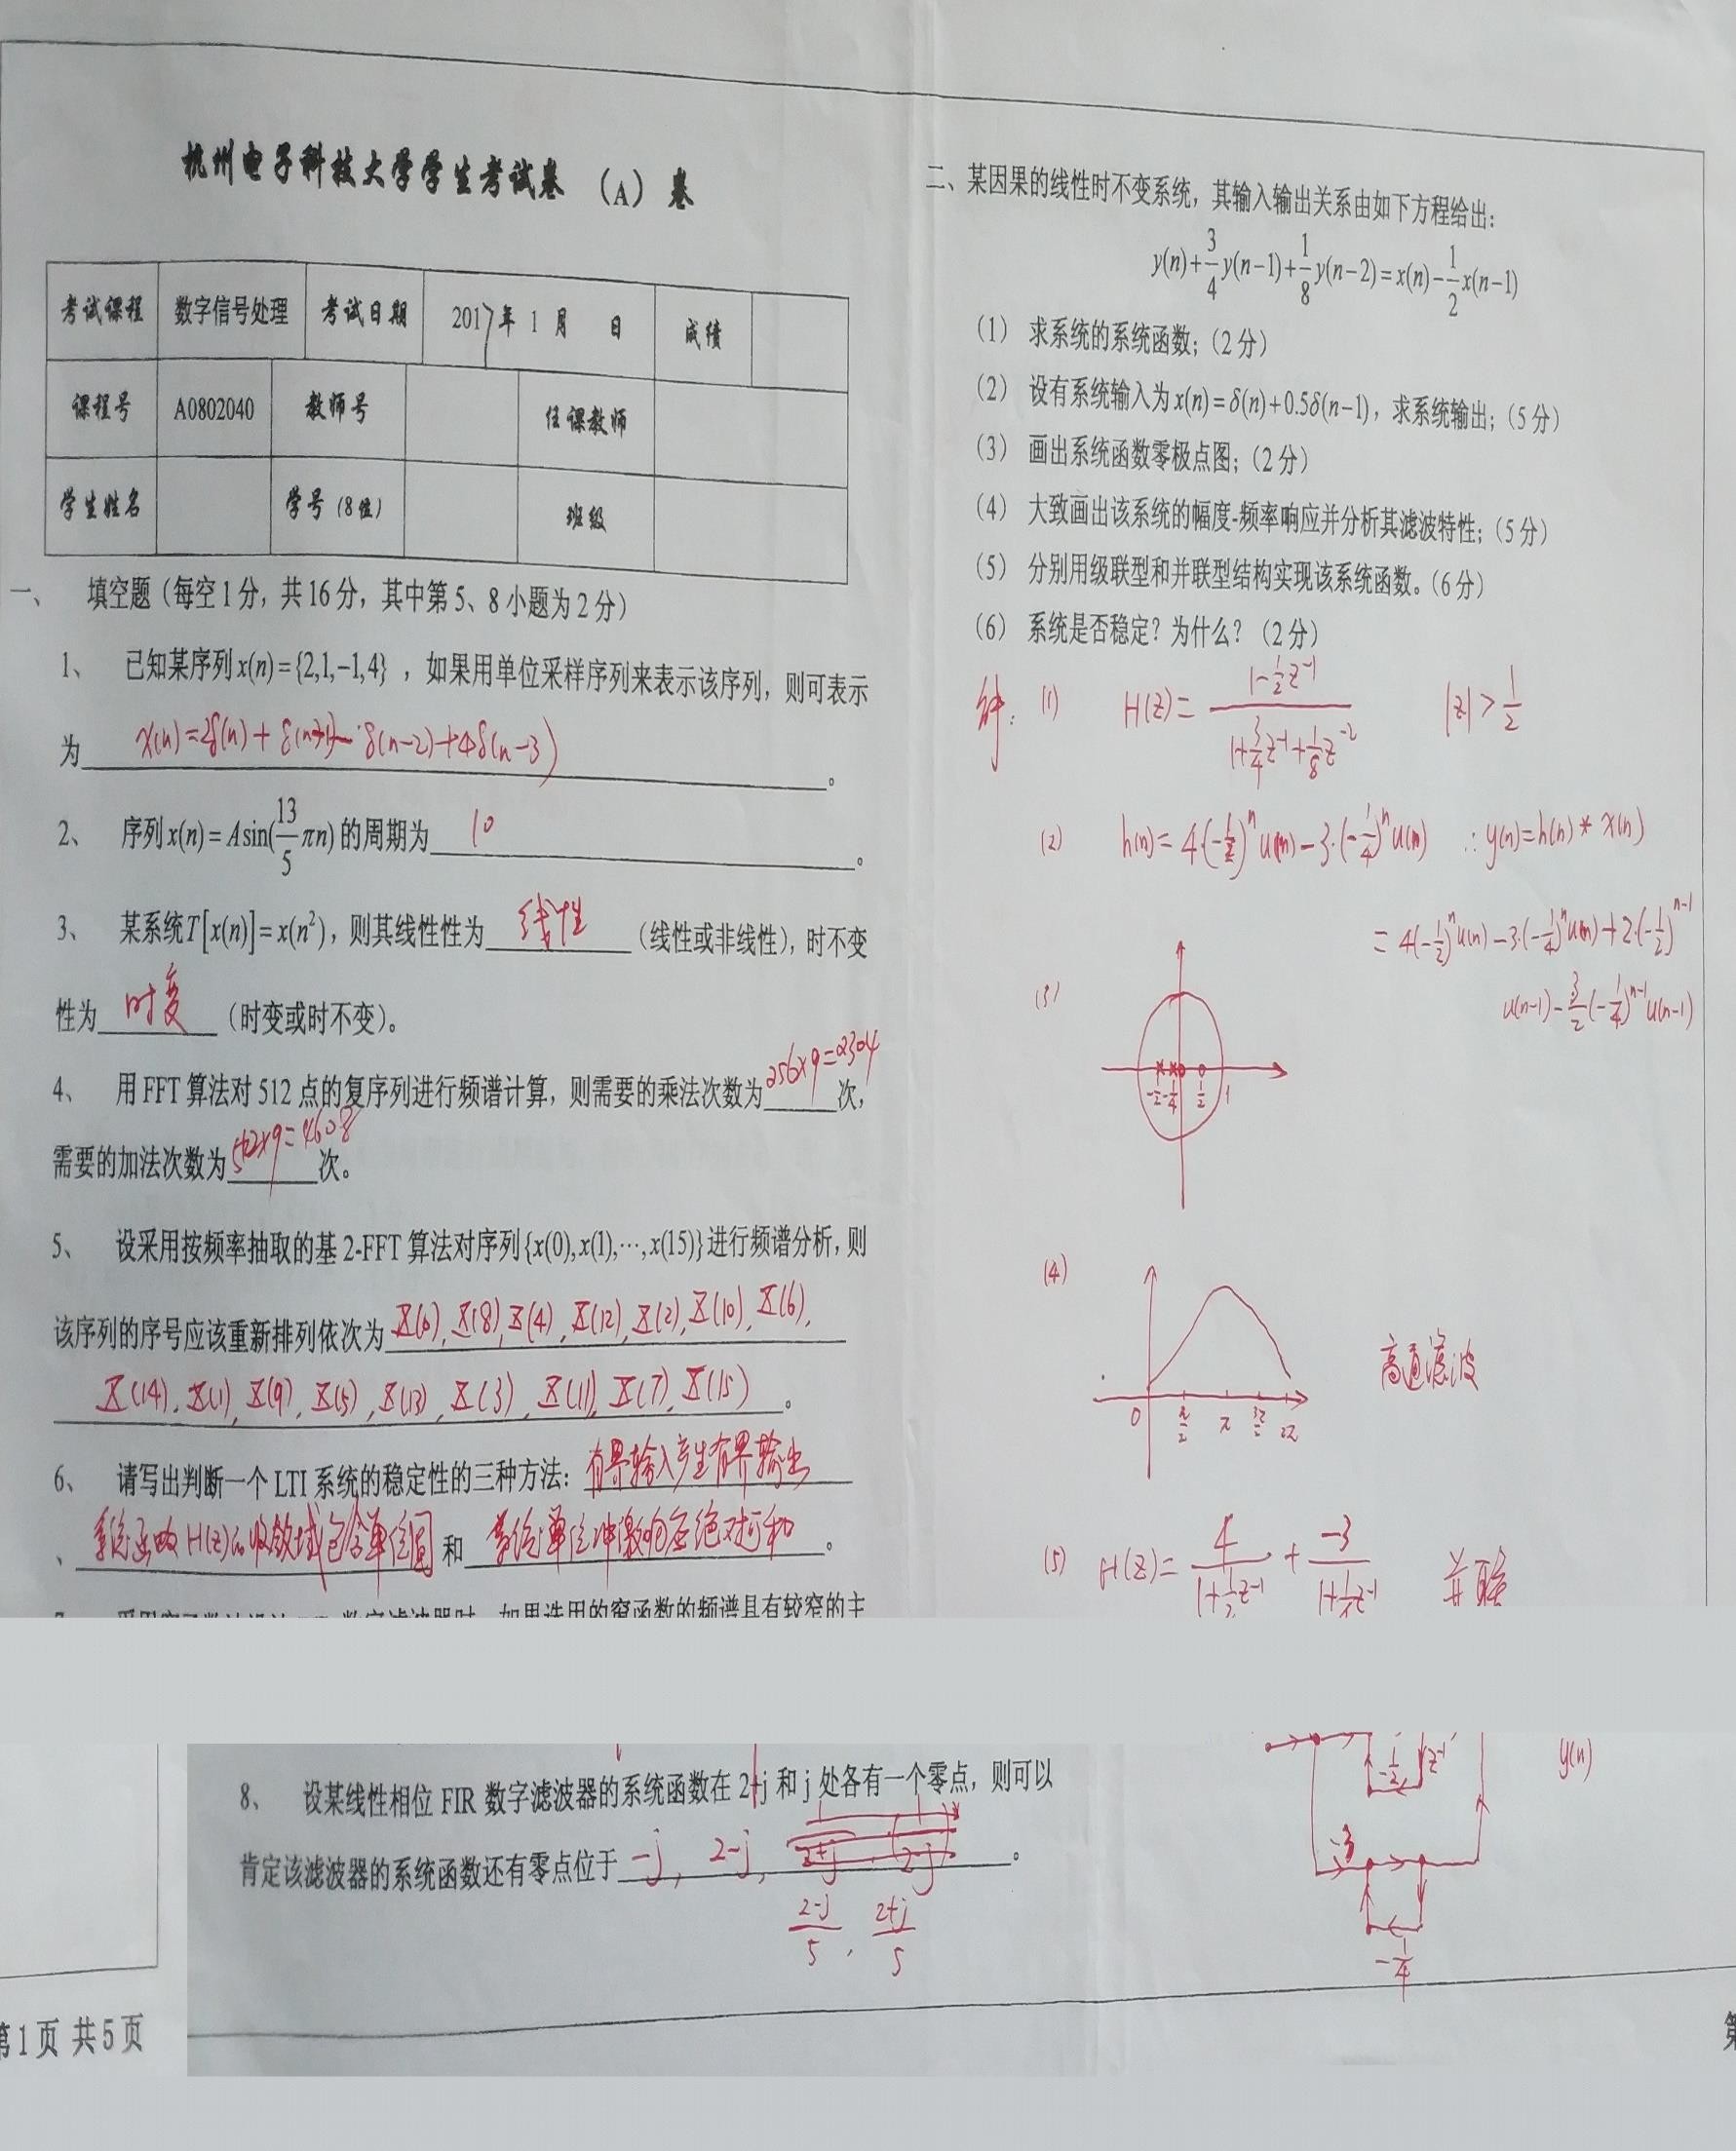 杭州电子科技大学学生考试卷 (A) 卷
考试课程 数字信号处理 考试日期 2017年 1 月 日 成绩
课程号 A0802040 教师号 任课教师
学生姓名 学号 (8位) 班级
一、 填空题（每空1分，共16分，其中第5、8小题为2分）
1、 已知某序列x(n)={2,1,−1,4}，如果用单位采样序列来表示该序列，则可表示
为 x(n)=2δ(n)+δ(n-1)-δ(n-2)+4δ(n-3) 。
2、 序列x(n)=Asin(13/5 πn)的周期为 10 。
3、 某系统T[x(n)]=x(n²)，则其线性性为 线性 （线性或非线性），时不变
性为 时变 （时变或时不变）。
4、 用FFT算法对512点的复序列进行频谱计算，则需要的乘法次数为 256×9=2304 次，
需要的加法次数为 512×9=4608 次。
5、 设采用按频率抽取的基2-FFT算法对序列{x(0),x(1),⋯,x(15)}进行频谱分析，则
该序列的序号应该重新排列依次为 X(0), X(8), X(4), X(12), X(2), X(10), X(6),
X(14), X(1), X(9), X(5), X(13), X(3), X(11), X(7), X(15) 。
6、 请写出判断一个LTI系统的稳定性的三种方法：有界输入产生有界输出
、系统函数H(z)的收敛域包含单位圆 和 系统单位冲激响应绝对可和 。
数字滤波器时，如果选用的窗函数的频谱具有较窄的主
8、 设某线性相位FIR数字滤波器的系统函数在2+j和j处各有一个零点，则可以
肯定该滤波器的系统函数还有零点位于 -j, 2-j, 。
(2-j)/5, (2+j)/5
第1页 共5页
二、某因果的线性时不变系统，其输入输出关系由如下方程给出：
y(n)+3/4 y(n−1)+1/8 y(n−2)=x(n)−1/2 x(n−1)
(1) 求系统的系统函数；(2分)
(2) 设有系统输入为x(n)=δ(n)+0.5δ(n−1)，求系统输出；(5分)
(3) 画出系统函数零极点图；(2分)
(4) 大致画出该系统的幅度-频率响应并分析其滤波特性；(5分)
(5) 分别用级联型和并联型结构实现该系统函数。(6分)
(6) 系统是否稳定？为什么？(2分)
解: (1) H(z)= (1-1/2 z⁻¹)/(1+3/4 z⁻¹+1/8 z⁻²) |z|>1/2
(2) h(n)=4·(-1/2)ⁿu(n)-3·(-1/4)ⁿu(n) ∴y(n)=h(n)*x(n)
=4(-1/2)ⁿu(n)-3·(-1/4)ⁿu(n)+2·(-1/2)ⁿ⁻¹
u(n-1)-3/2(-1/4)ⁿ⁻¹u(n-1)
(3)
-1/2 -1/4 1/2 1
(4)
高通滤波
0 π/2 π 3π/2 2π
(5) H(z)= 4/(1+1/2 z⁻¹) + -3/(1+1/4 z⁻¹) 并联
-1/2 z⁻¹ y(n)
-3
-1/4
第